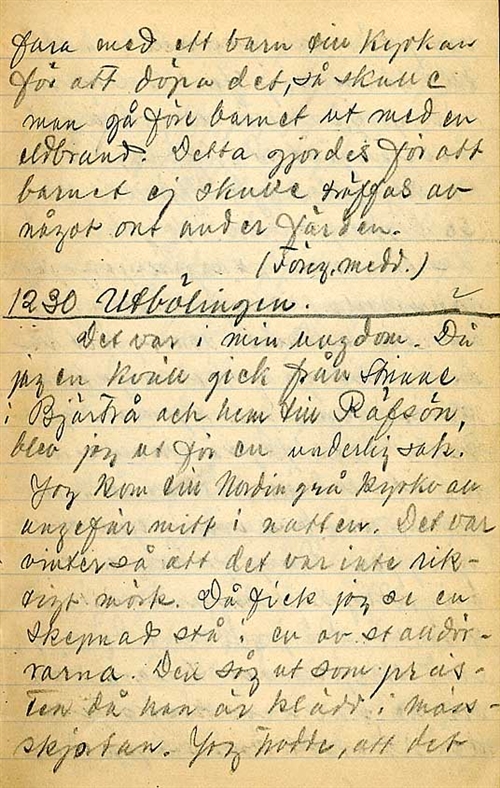 fara med ett barn till kyrkan
för att döpa det, så skulle
man gå före barnet ut med en
eldbrand. Detta gjordes för att
barnet ej skulle träffas av
något ont under färden.
(Föreg. medd.)
1230 Utbölingen.
Det var i min ungdom. Då
jag en kväll gick från
i Bjärtrå och hem till Räfsön,
blev jag ut för en underlig sak.
Jag kom till Nordingrå kyrka
ungefär mitt i natten. Det var
vinter så att det var inte rik-
tigt mörk. Då fick jag se en
skepnad stå i en av
varna. Den såg ut som präs-
ten då han är klädd i mäss-
skjortan. Jag trodde, att det